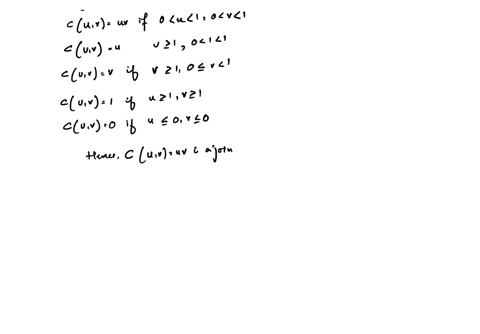 C(u,v) = uv if 0<u<1, 0<v<1
C(u,v) = u u≥1, 0<1<1
C(u,v) = v if v≥1, 0≤v<1
C(u,v) = 1 if u≥1, v≥1
C(u,v) = 0 if u≤0, v≤0
Hence, C(u,v) = uv is a join